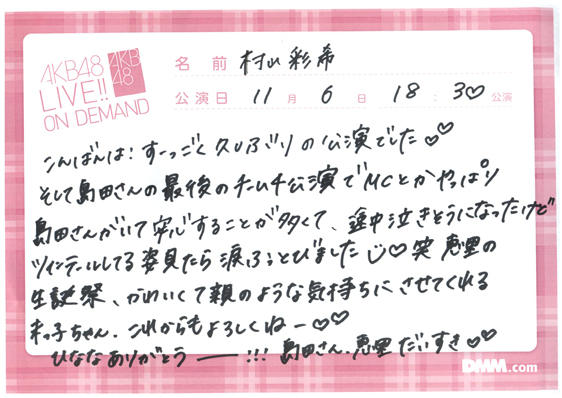 AKB48
LIVE!!
ON DEMAND
AKB
48
名 前 村山彩希
公演日 11 月 6 日 18 : 30♡ 公演
こんばんは！すーっごく久しぶりの公演でした♡♡
そして島田さんの最後のチーム4公演でMCとかやっぱり
島田さんがいて安心することが多くて、途中泣きそうになったけど
ツインテールしてる姿見たら涙ふっとびました♡笑 恵里の
生誕祭、かわいくて親のような気持ちにさせてくれる
末っ子ちゃん．これからもよろしくねー♡♡
ひななありがとう ー!!! 島田さん、恵里だいすき♡♡
DMM.com